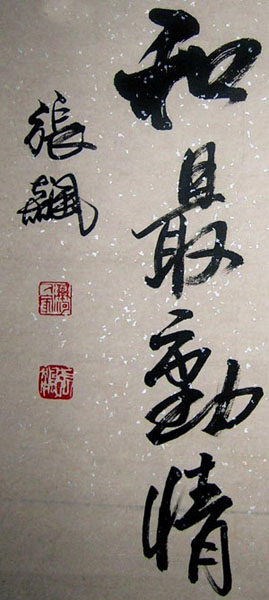 和最動情
張飆